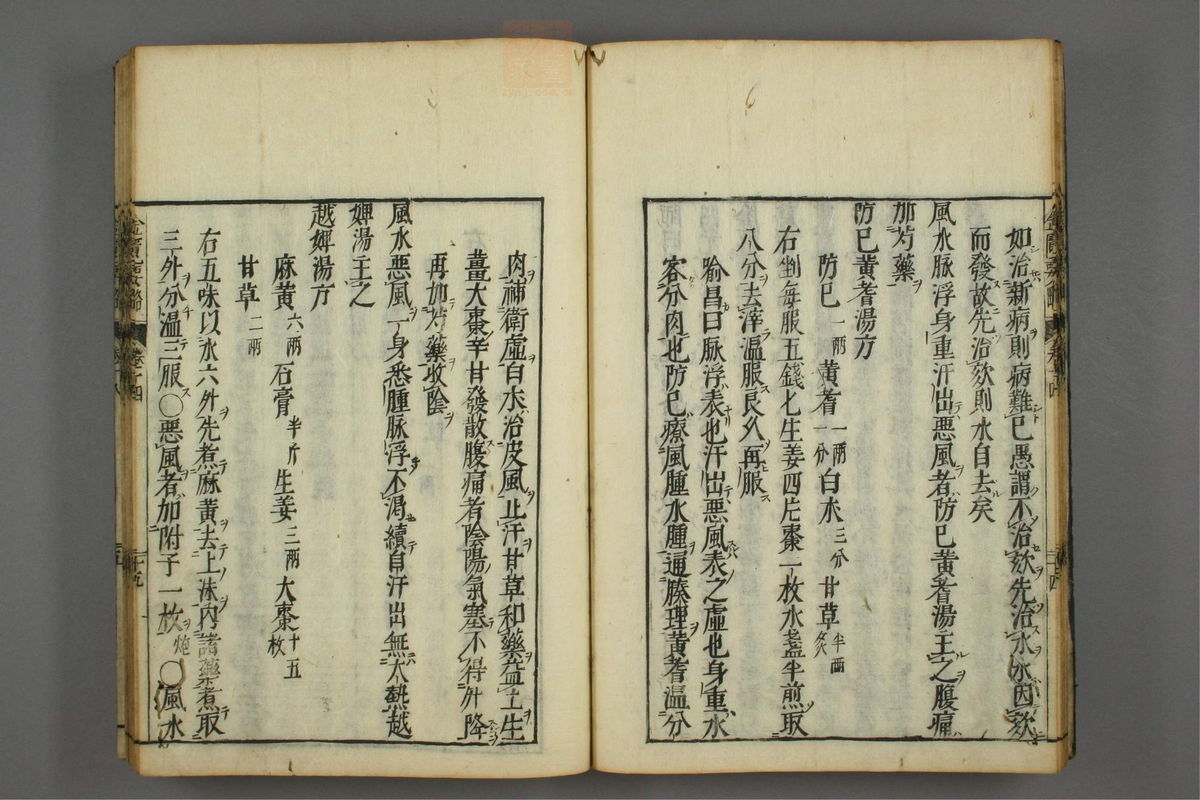 如治新病則病難已愚謂不治欬先治水水因欬
而發故先治欬則水自去矣
風水脉浮身重汗出惡風者防已黃耆湯主之腹痛
加芍藥
防已黃耆湯方
防已一兩黃耆一兩一分白朮三分甘草半兩炙
右剉每服五錢匕生姜四片棗一枚水盞半煎取
八分去滓溫服良久再服
喻昌曰脉浮表也汗出惡風表之虛也身重水
客分肉也防已療風腫水腫通腠理黃耆溫分
肉補衛虛白朮治皮風止汗甘草和藥益土生
薑大棗辛甘發散腹痛者陰陽氣塞不得升降
再加芍藥收陰
風水惡風一身悉腫脉浮不渴續自汗出無大熱越
婢湯主之
越婢湯方
麻黃六兩石膏半斤生姜三兩大棗十五枚
甘草二兩
右五味以水六升先煮麻黃去上沫內諸藥煮取
三升分溫三服○惡風者加附子一枚炮○風水